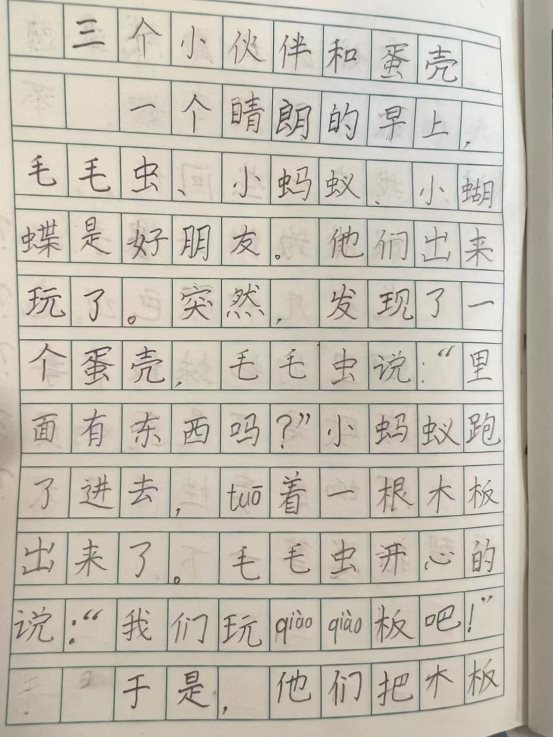 三个小伙伴和蛋壳
一个晴朗的早上,
毛毛虫、小蚂蚁、小蝴
蝶是好朋友。他们出来
玩了。突然,发现了一
个蛋壳,毛毛虫说:“里
面有东西吗?”小蚂蚁跑
了进去,tuō着一根木板
出来了。毛毛虫开心的
说:“我们玩qiào qiào板吧!”
于是,他们把木板